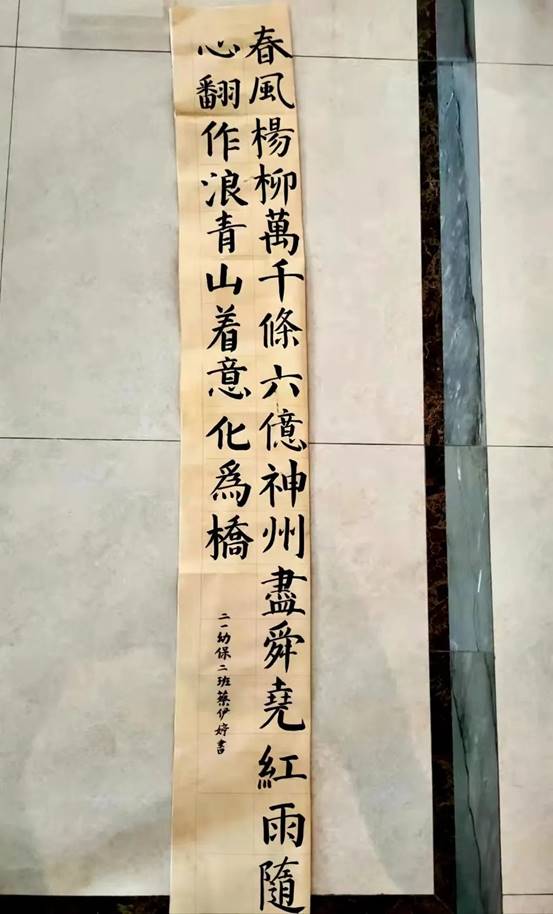 春風楊柳萬千條六億神州盡舜堯紅雨隨
心翻作浪青山着意化爲橋
二一幼保二班蔡伊婷書